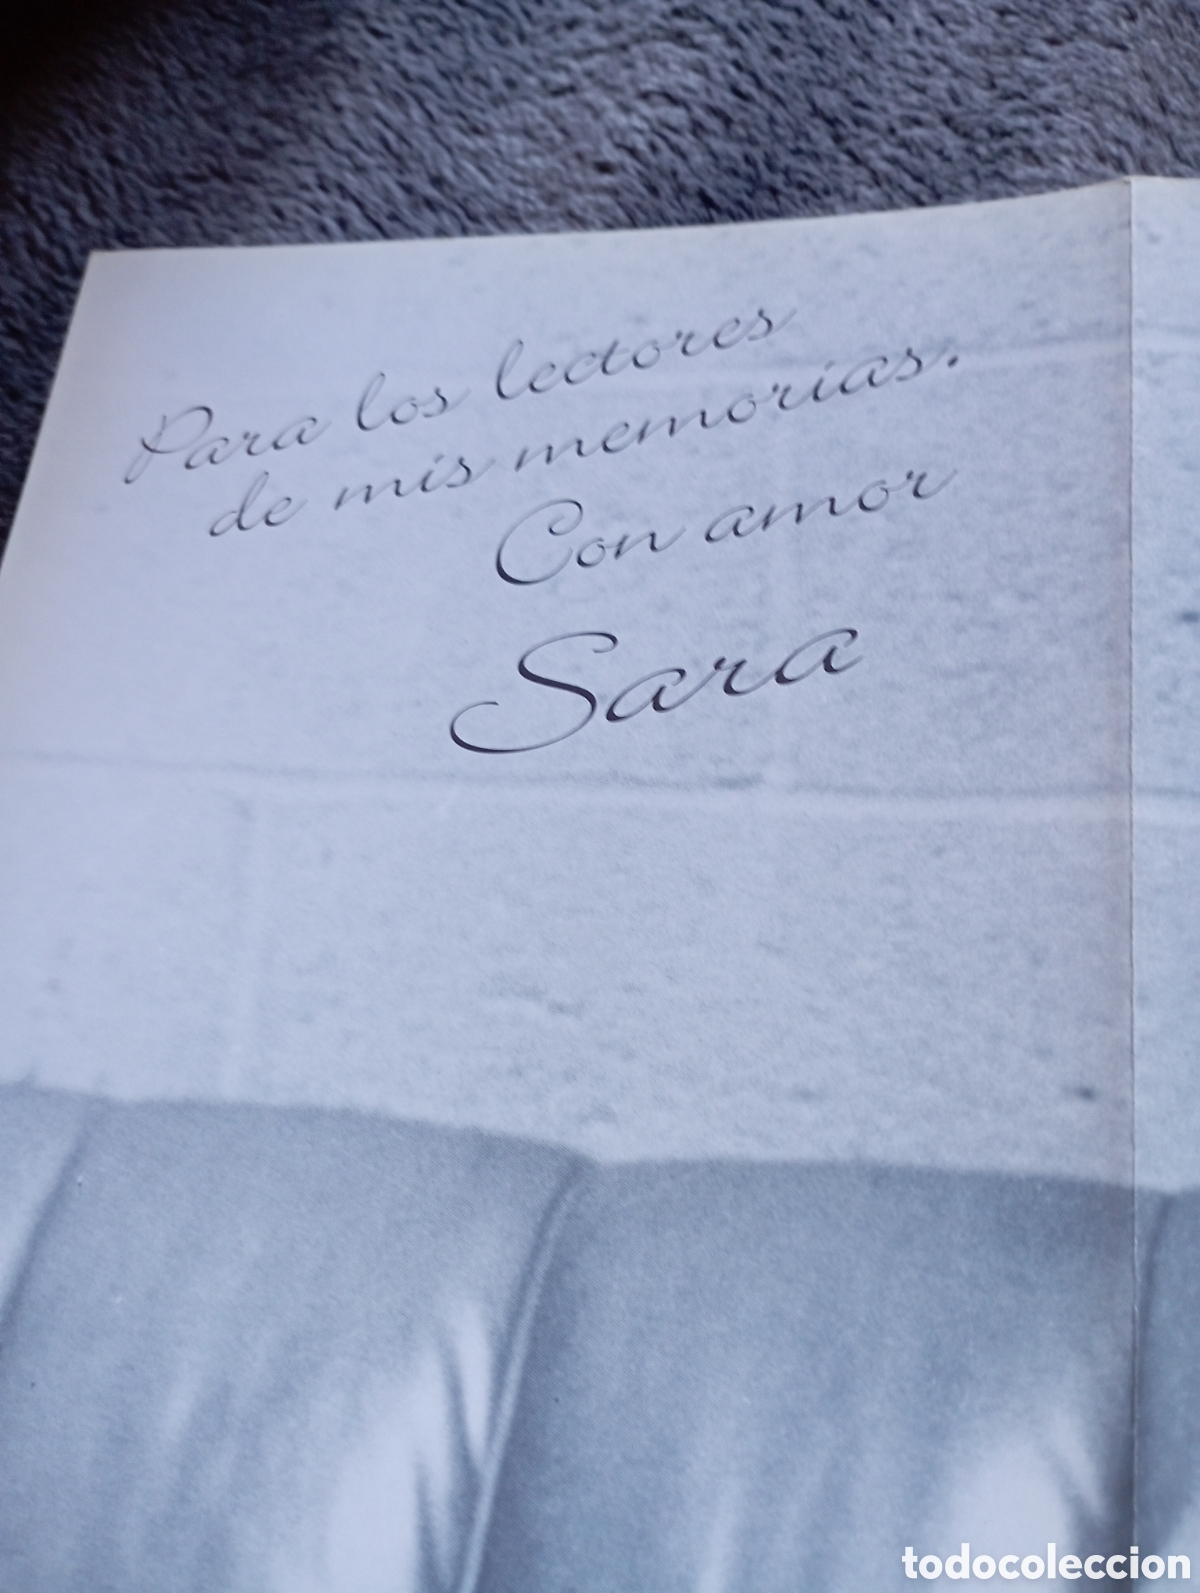 Para los lectores
de mis memorias.
Con amor
Sara
todocoleccion